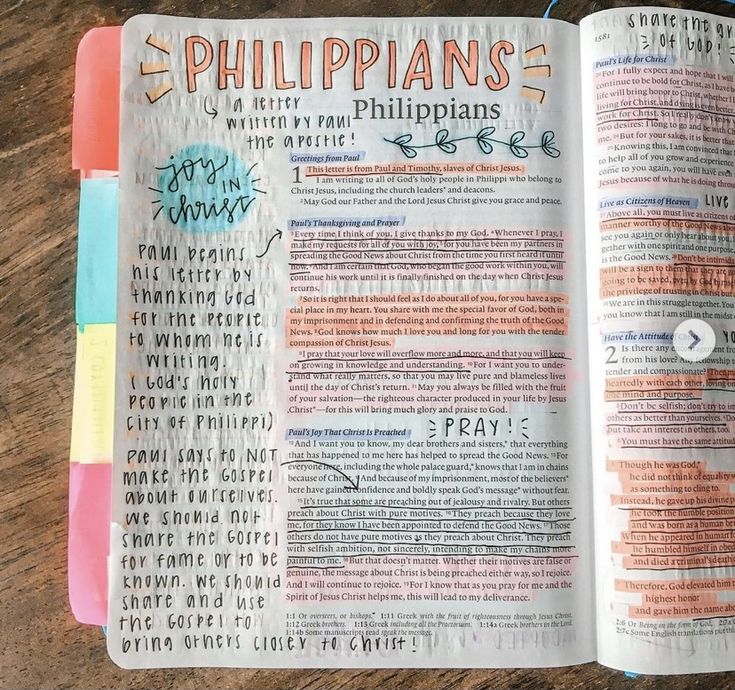 PHILIPPIANS
a letter
written by paul
the apostle!
Philippians
joy
IN
christ
Paul begins
his letter by
thanking God
for the people
to whom he is
writing.
(God's holy
people in the
city of Philippi)
Paul says to NOT
make the Gospel
about ourselves.
We should not
share the Gospel
for fame or to be
known. We should
share and use
the Gospel to
bring others closer to Christ!
Greetings from Paul
1 This letter is from Paul and Timothy, slaves of Christ Jesus.
I am writing to all of God's holy people in Philippi who belong to
Christ Jesus, including the church leaders* and deacons.
²May God our Father and the Lord Jesus Christ give you grace and peace.
Paul's Thanksgiving and Prayer
³Every time I think of you, I give thanks to my God. ⁴Whenever I pray, I
make my requests for all of you with joy, ⁵for you have been my partners in
spreading the Good News about Christ from the time you first heard it until
now. ⁶And I am certain that God, who began the good work within you, will
continue his work until it is finally finished on the day when Christ Jesus
returns.
⁷So it is right that I should feel as I do about all of you, for you have a spe-
cial place in my heart. You share with me the special favor of God, both in
my imprisonment and in defending and confirming the truth of the Good
News. ⁸God knows how much I love you and long for you with the tender
compassion of Christ Jesus.
⁹I pray that your love will overflow more and more, and that you will keep
on growing in knowledge and understanding. ¹⁰For I want you to under-
stand what really matters, so that you may live pure and blameless lives
until the day of Christ's return. ¹¹May you always be filled with the fruit
of your salvation—the righteous character produced in your life by Jesus
Christ*—for this will bring much glory and praise to God.
PRAY!
Paul's Joy That Christ Is Preached
¹²And I want you to know, my dear brothers and sisters,* that everything
that has happened to me here has helped to spread the Good News. ¹³For
everyone here, including the whole palace guard,* knows that I am in chains
because of Christ. ¹⁴And because of my imprisonment, most of the believers*
here have gained confidence and boldly speak God's message* without fear.
¹⁵It's true that some are preaching out of jealousy and rivalry. But others
preach about Christ with pure motives. ¹⁶They preach because they love
me, for they know I have been appointed to defend the Good News. ¹⁷Those
others do not have pure motives as they preach about Christ. They preach
with selfish ambition, not sincerely, intending to make my chains more
painful to me. ¹⁸But that doesn't matter. Whether their motives are false or
genuine, the message about Christ is being preached either way, so I rejoice.
And I will continue to rejoice. ¹⁹For I know that as you pray for me and the
Spirit of Jesus Christ helps me, this will lead to my deliverance.
1:1 Or overseers, or bishops. 1:11 Greek with the fruit of righteousness through Jesus Christ.
1:12 Greek brothers. 1:13 Greek including all the Praetorium. 1:14a Greek brothers in the Lord.
1:14b Some manuscripts read speak the message.
share the
of God!
1581
Paul's Life for Christ
²⁰For I fully expect and hope that I will
continue to be bold for Christ, as I have
life will bring honor to Christ, whether I
living for Christ, and dying is even better.
work for Christ. So I really don't know
two desires: I long to go and be with
me. ²⁴But for your sakes, it is better that
²⁵Knowing this, I am convinced that
to help all of you grow and experience
come to you again, you will have even
Jesus because of what he is doing through
LIVE
Live as Citizens of Heaven
²⁷Above all, you must live as citizens of
manner worthy of the Good News
see you again or only hear about you,
gether with one spirit and one purpose,
is the Good News. ²⁸Don't be intimidated
will be a sign to them that they are
going to be saved, even by God
the privilege of trusting in Christ
³⁰We are in this struggle together. You
you know that I am still in the midst
Have the Attitude of Christ
2 Is there any encouragement from
from his love? Any fellowship
tender and compassionate? ²Then
heartedly with each other, loving one
one mind and purpose.
³Don't be selfish; don't try to
others as better than yourselves.
but take an interest in others, too.
⁵You must have the same attitude
⁶Though he was God,*
he did not think of equality
as something to cling to.
⁷Instead, he gave up his divine
he took the humble position
and was born as a human
When he appeared in human
⁸he humbled himself in
and died a criminal's death
⁹Therefore, God elevated him
highest honor
and gave him the name
2:6 Or Being in the form of God.
2:9c Some English translations put